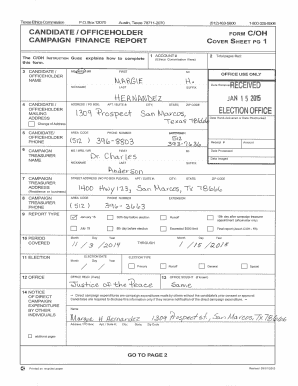 Texas Ethics Commission P.O. Box 12070 Austin, Texas 78711-2070 (512) 463-5800 1-800-325-8506
CANDIDATE / OFFICEHOLDER CAMPAIGN FINANCE REPORT
FORM C/OH
COVER SHEET PG 1
The C/OH Instruction Guide explains how to complete this form.
1 ACCOUNT #
(Ethics Commission Filers)
2 Total pages filed:
3 CANDIDATE / OFFICEHOLDER NAME
MS / MRS / MR FIRST MI
MARGIE H.
NICKNAME LAST SUFFIX
HERNANDEZ
OFFICE USE ONLY
Date Received
RECEIVED
JAN 15 2015
ELECTION OFFICE
4 CANDIDATE / OFFICEHOLDER ADDRESS
ADDRESS / PO BOX; APT / SUITE #; CITY; STATE; ZIP CODE
1309 Prospect San Marcos,
Texas 78666
Change of Address
5 CANDIDATE / OFFICEHOLDER PHONE
AREA CODE PHONE NUMBER EXTENSION
(512) 396-8803
512
393-7636
Receipt # Amount
Date Processed
Date Imaged
6 CAMPAIGN TREASURER NAME
MS / MRS / MR FIRST MI
Dr. Charles
NICKNAME LAST SUFFIX
Anderson
7 CAMPAIGN TREASURER ADDRESS
(Residence or business)
STREET ADDRESS (NO PO BOX PLEASE); APT / SUITE #; CITY; STATE; ZIP CODE
1400 Hwy 123, San Marcos, Tx 78666
8 CAMPAIGN TREASURER PHONE
AREA CODE PHONE NUMBER EXTENSION
(512) 396-3663
9 REPORT TYPE
January 15 30th day before election Runoff 15th day after campaign treasurer appointment (officeholder only)
July 15 8th day before election Exceeded $500 limit Final report (Attach C/OH - FR)
10 PERIOD COVERED
Month Day Year Month Day Year
11/3/2014 THROUGH 1/15/2015
11 ELECTION
ELECTION DATE
Month Day Year
ELECTION TYPE
Primary Runoff General Special
12 OFFICE
OFFICE HELD (if any)
Justice of the Peace
13 OFFICE SOUGHT (if known)
Same
14 NOTICE OF DIRECT CAMPAIGN EXPENDITURE BY OTHER INDIVIDUALS
Name
Margie H Hernandez 1309 Prospect st. San Marcos, TX 78666
additional pages
GO TO PAGE 2